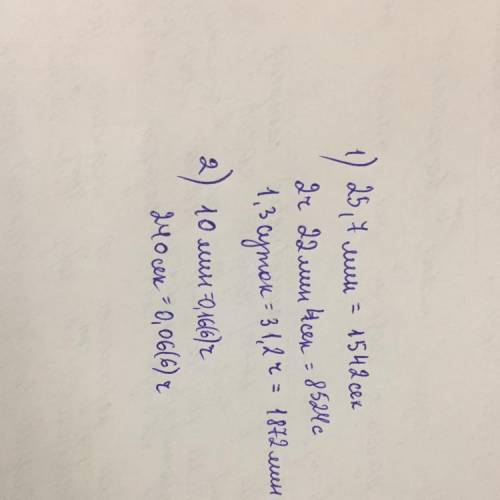 1) 25,7 мин = 1542 сек
2ч 22 мин 4 сек = 8524 с
1,3 суток = 31,2 ч = 1872 мин
2) 10 мин = 0,16(6) ч
240 сек = 0,06(6) ч